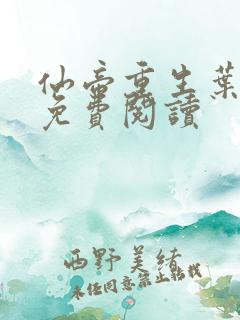 仙帝重生葉
免費閱讀
西野美緒
未经同意禁止轉載